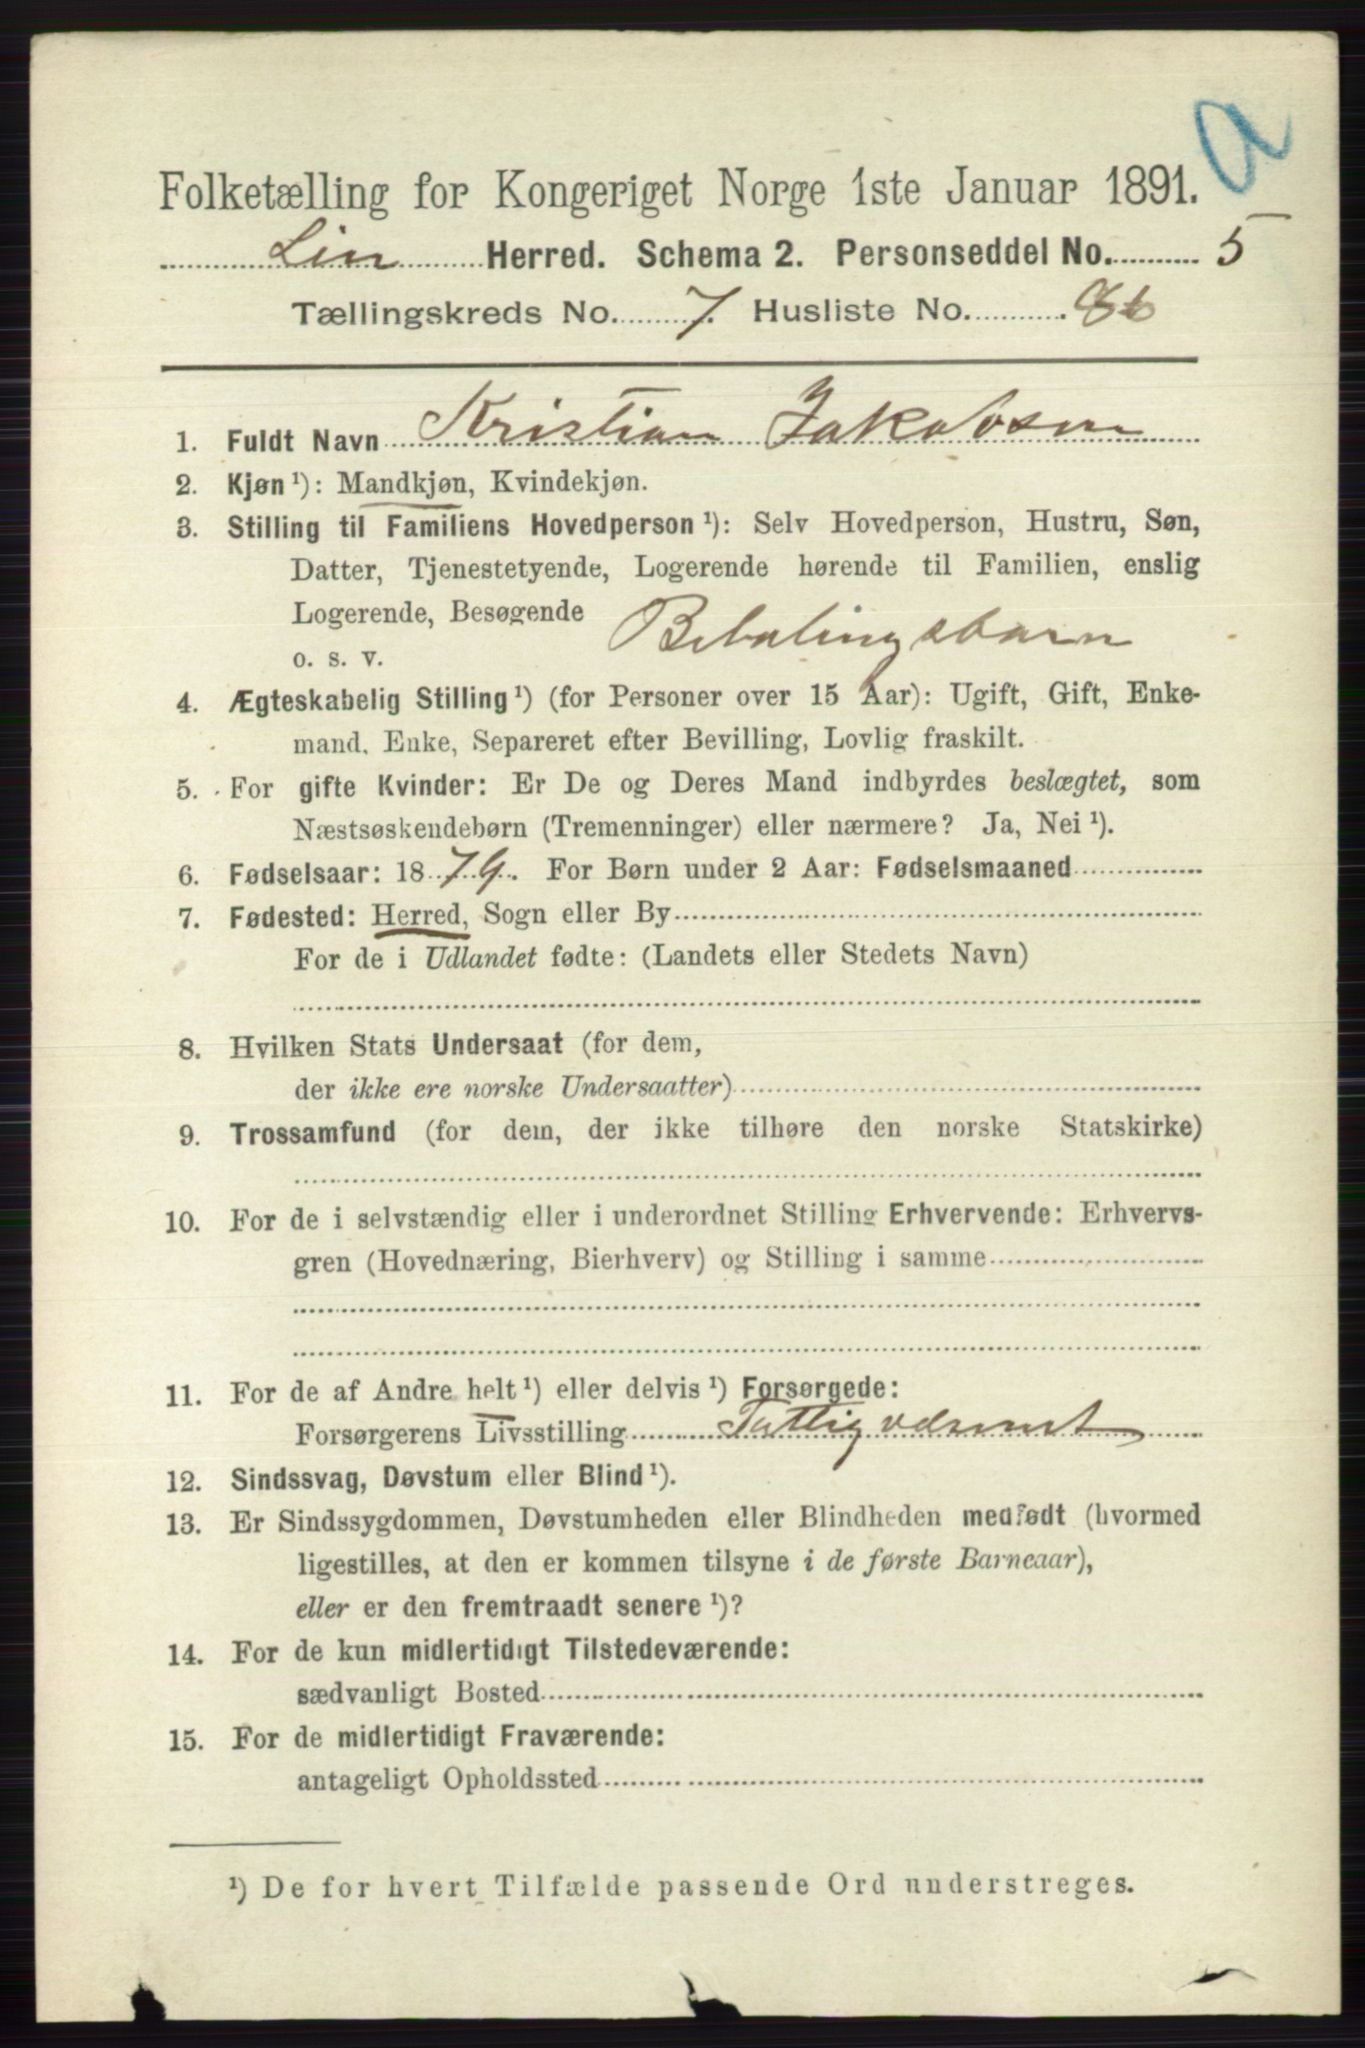 a
Folketælling for Kongeriget Norge 1ste Januar 1891.
Lier Herred. Schema 2. Personseddel No. 5
Tællingskreds No. 7. Husliste No. 86
1. Fuldt Navn Kristian Jakobsen
2. Kjøn ¹): Mandkjøn, Kvindekjøn.
3. Stilling til Familiens Hovedperson ¹): Selv Hovedperson, Hustru, Søn,
Datter, Tjenestetyende, Logerende hørende til Familien, enslig
Logerende, Besøgende
o. s. v. Betalingsbarn
4. Ægteskabelig Stilling ¹) (for Personer over 15 Aar): Ugift, Gift, Enke-
mand, Enke, Separeret efter Bevilling, Lovlig fraskilt.
5. For gifte Kvinder: Er De og Deres Mand indbyrdes beslægtet, som
Næstsøskendebørn (Tremenninger) eller nærmere? Ja, Nei ¹).
6. Fødselsaar: 1879. For Børn under 2 Aar: Fødselsmaaned
7. Fødested: Herred, Sogn eller By
For de i Udlandet fødte: (Landets eller Stedets Navn)
8. Hvilken Stats Undersaat (for dem,
der ikke ere norske Undersaatter)
9. Trossamfund (for dem, der ikke tilhøre den norske Statskirke)
10. For de i selvstændig eller i underordnet Stilling Erhvervende: Erhvervs-
gren (Hovednæring, Bierhverv) og Stilling i samme
11. For de af Andre helt ¹) eller delvis ¹) Forsørgede:
Forsørgerens Livsstilling Fattigvæsenet
12. Sindssvag, Døvstum eller Blind ¹).
13. Er Sindssygdommen, Døvstumheden eller Blindheden medfødt (hvormed
ligestilles, at den er kommen tilsyne i de første Barneaar),
eller er den fremtraadt senere ¹)?
14. For de kun midlertidigt Tilstedeværende:
sædvanligt Bosted
15. For de midlertidigt Fraværende:
antageligt Opholdssted
¹) De for hvert Tilfælde passende Ord understreges.